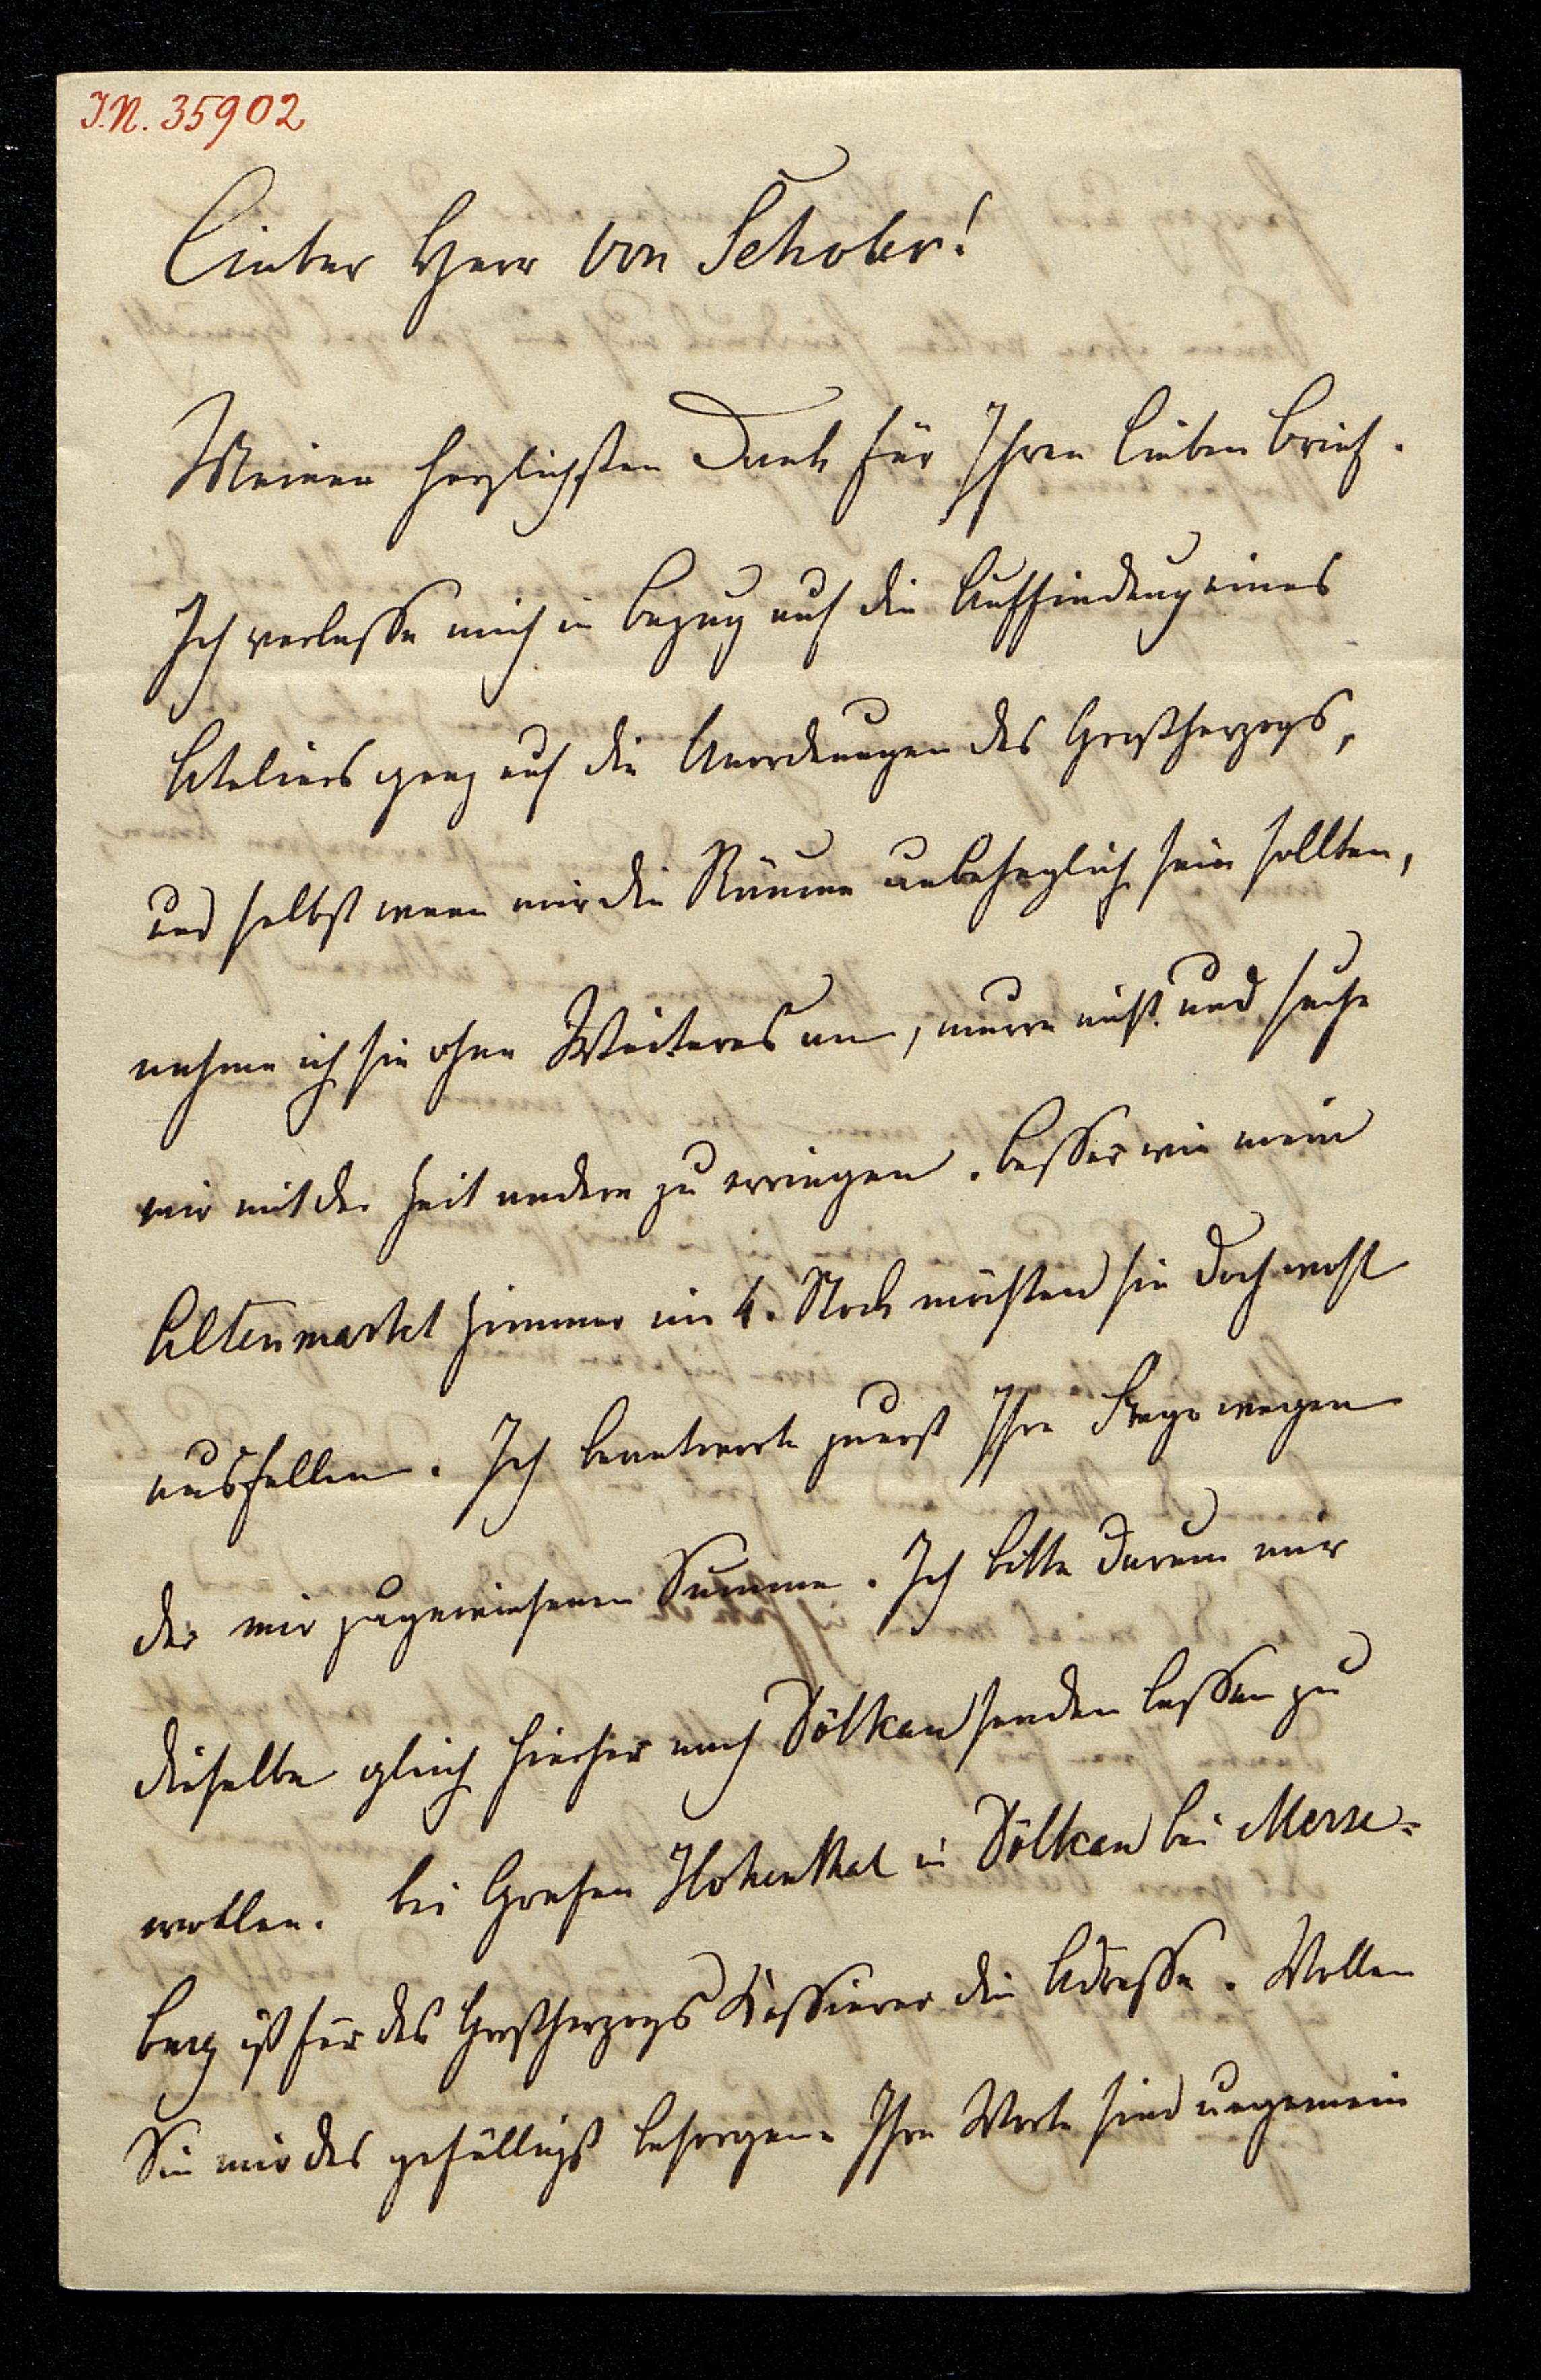 I.N. 35902
Lieber Herr von Schober!
Meinen herzlichsten Dank für Ihren lieben Brief.
Ich verlasse mich in Bezug auf die Auffindung eines
Ateliers ganz auf die Anordnungen des Großherzogs,
und selbst wenn mir die Räume unbehaglich sein sollten,
nehme ich sie ohne Weiteres an, murre nicht und suche
mir mit der Zeit andere zu erringen. Besser wie mein
Altenmarkt Zimmer im 4. Stock möchten sie doch wohl
ausfallen. Ich beantworte zuerst Ihre Frage wegen
der mir zugewiesenen Summe. Ich bitte darum mir
dieselbe gleich hierher nach Dölkau senden lassen zu
wollen. bei Grafen Hohenthal in Dölkau bei Merse-
burg ist für des Großherzogs Kassierer die Adresse. Wollen
Sie mir das gefälligst besorgen. Ihre Worte sind ungemein